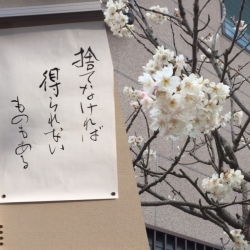 捨てなければ
得られない
ものもある